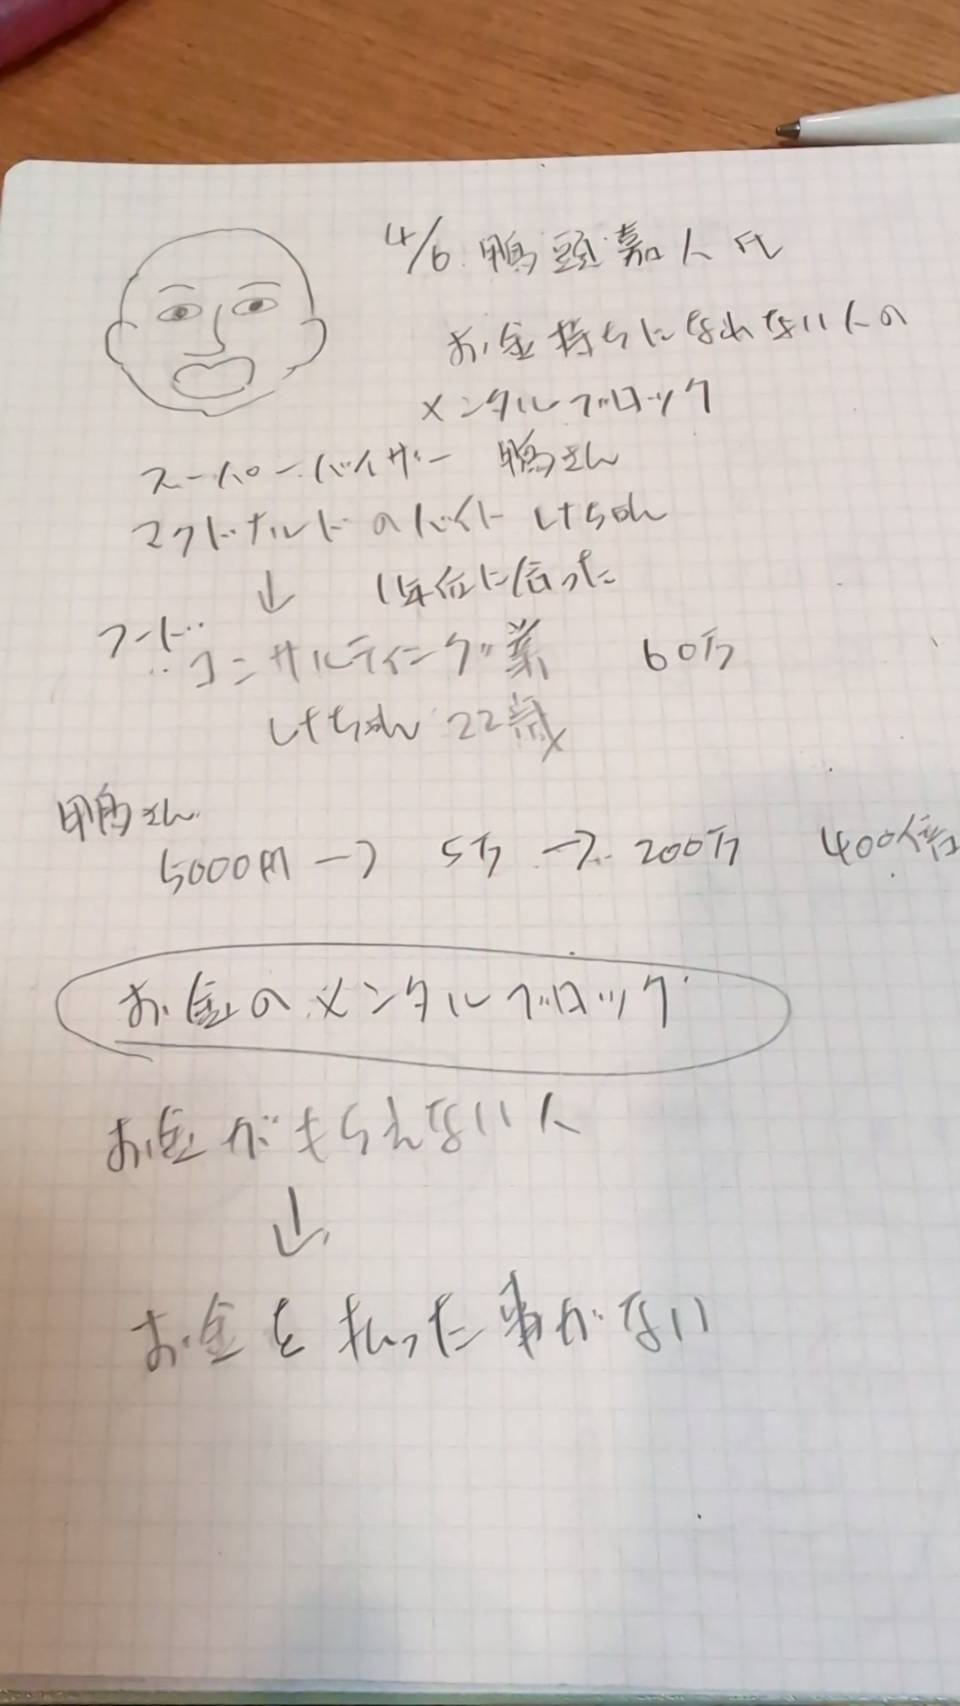 4/6 鴨頭嘉人氏
お金持ちになれない人の
メンタルブロック
スーパーバイザー 鴨さん
マクドナルドのバイト けちゃん
↓ 1年位に会った
フード‥
‥コンサルティング業 60万
けちゃん 22歳
鴨さん
5000円→5万→200万 400倍
お金のメンタルブロック
お金がもらえない人
↓
お金を払った事がない